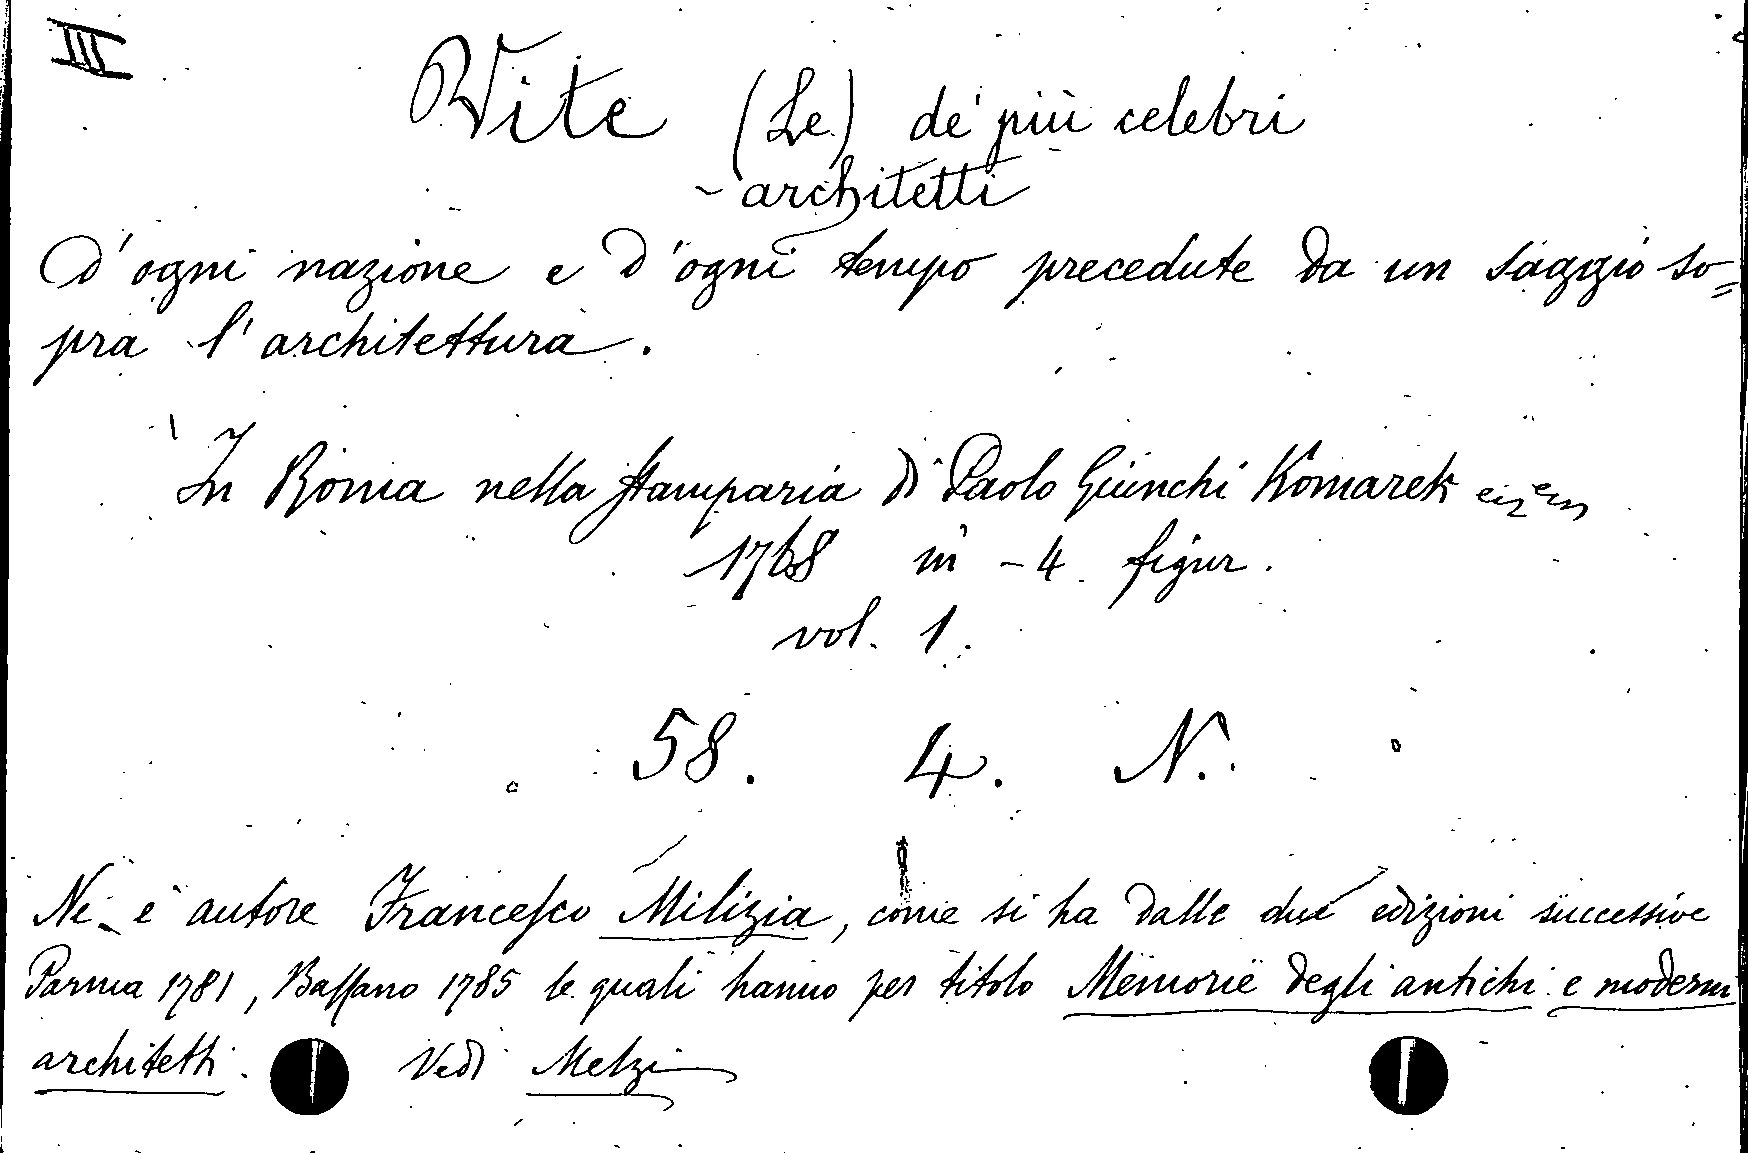 III
Vite (Le) de' più celebri
architetti
d'ogni nazione e d'ogni tempo precedute da un saggio so=
pra l'architettura.
In Roma nella Stamparia di Paolo Giunchi Komarek
1768 in - 4 figur.
vol. 1.
58. 4. N.
Ne è autore Francesco Milizia, come si ha dalle due edizioni successive
Parma 1781, Bassano 1785 le quali hanno per titolo Memorie degli antichi e moderni
architetti. Vedi Melzi